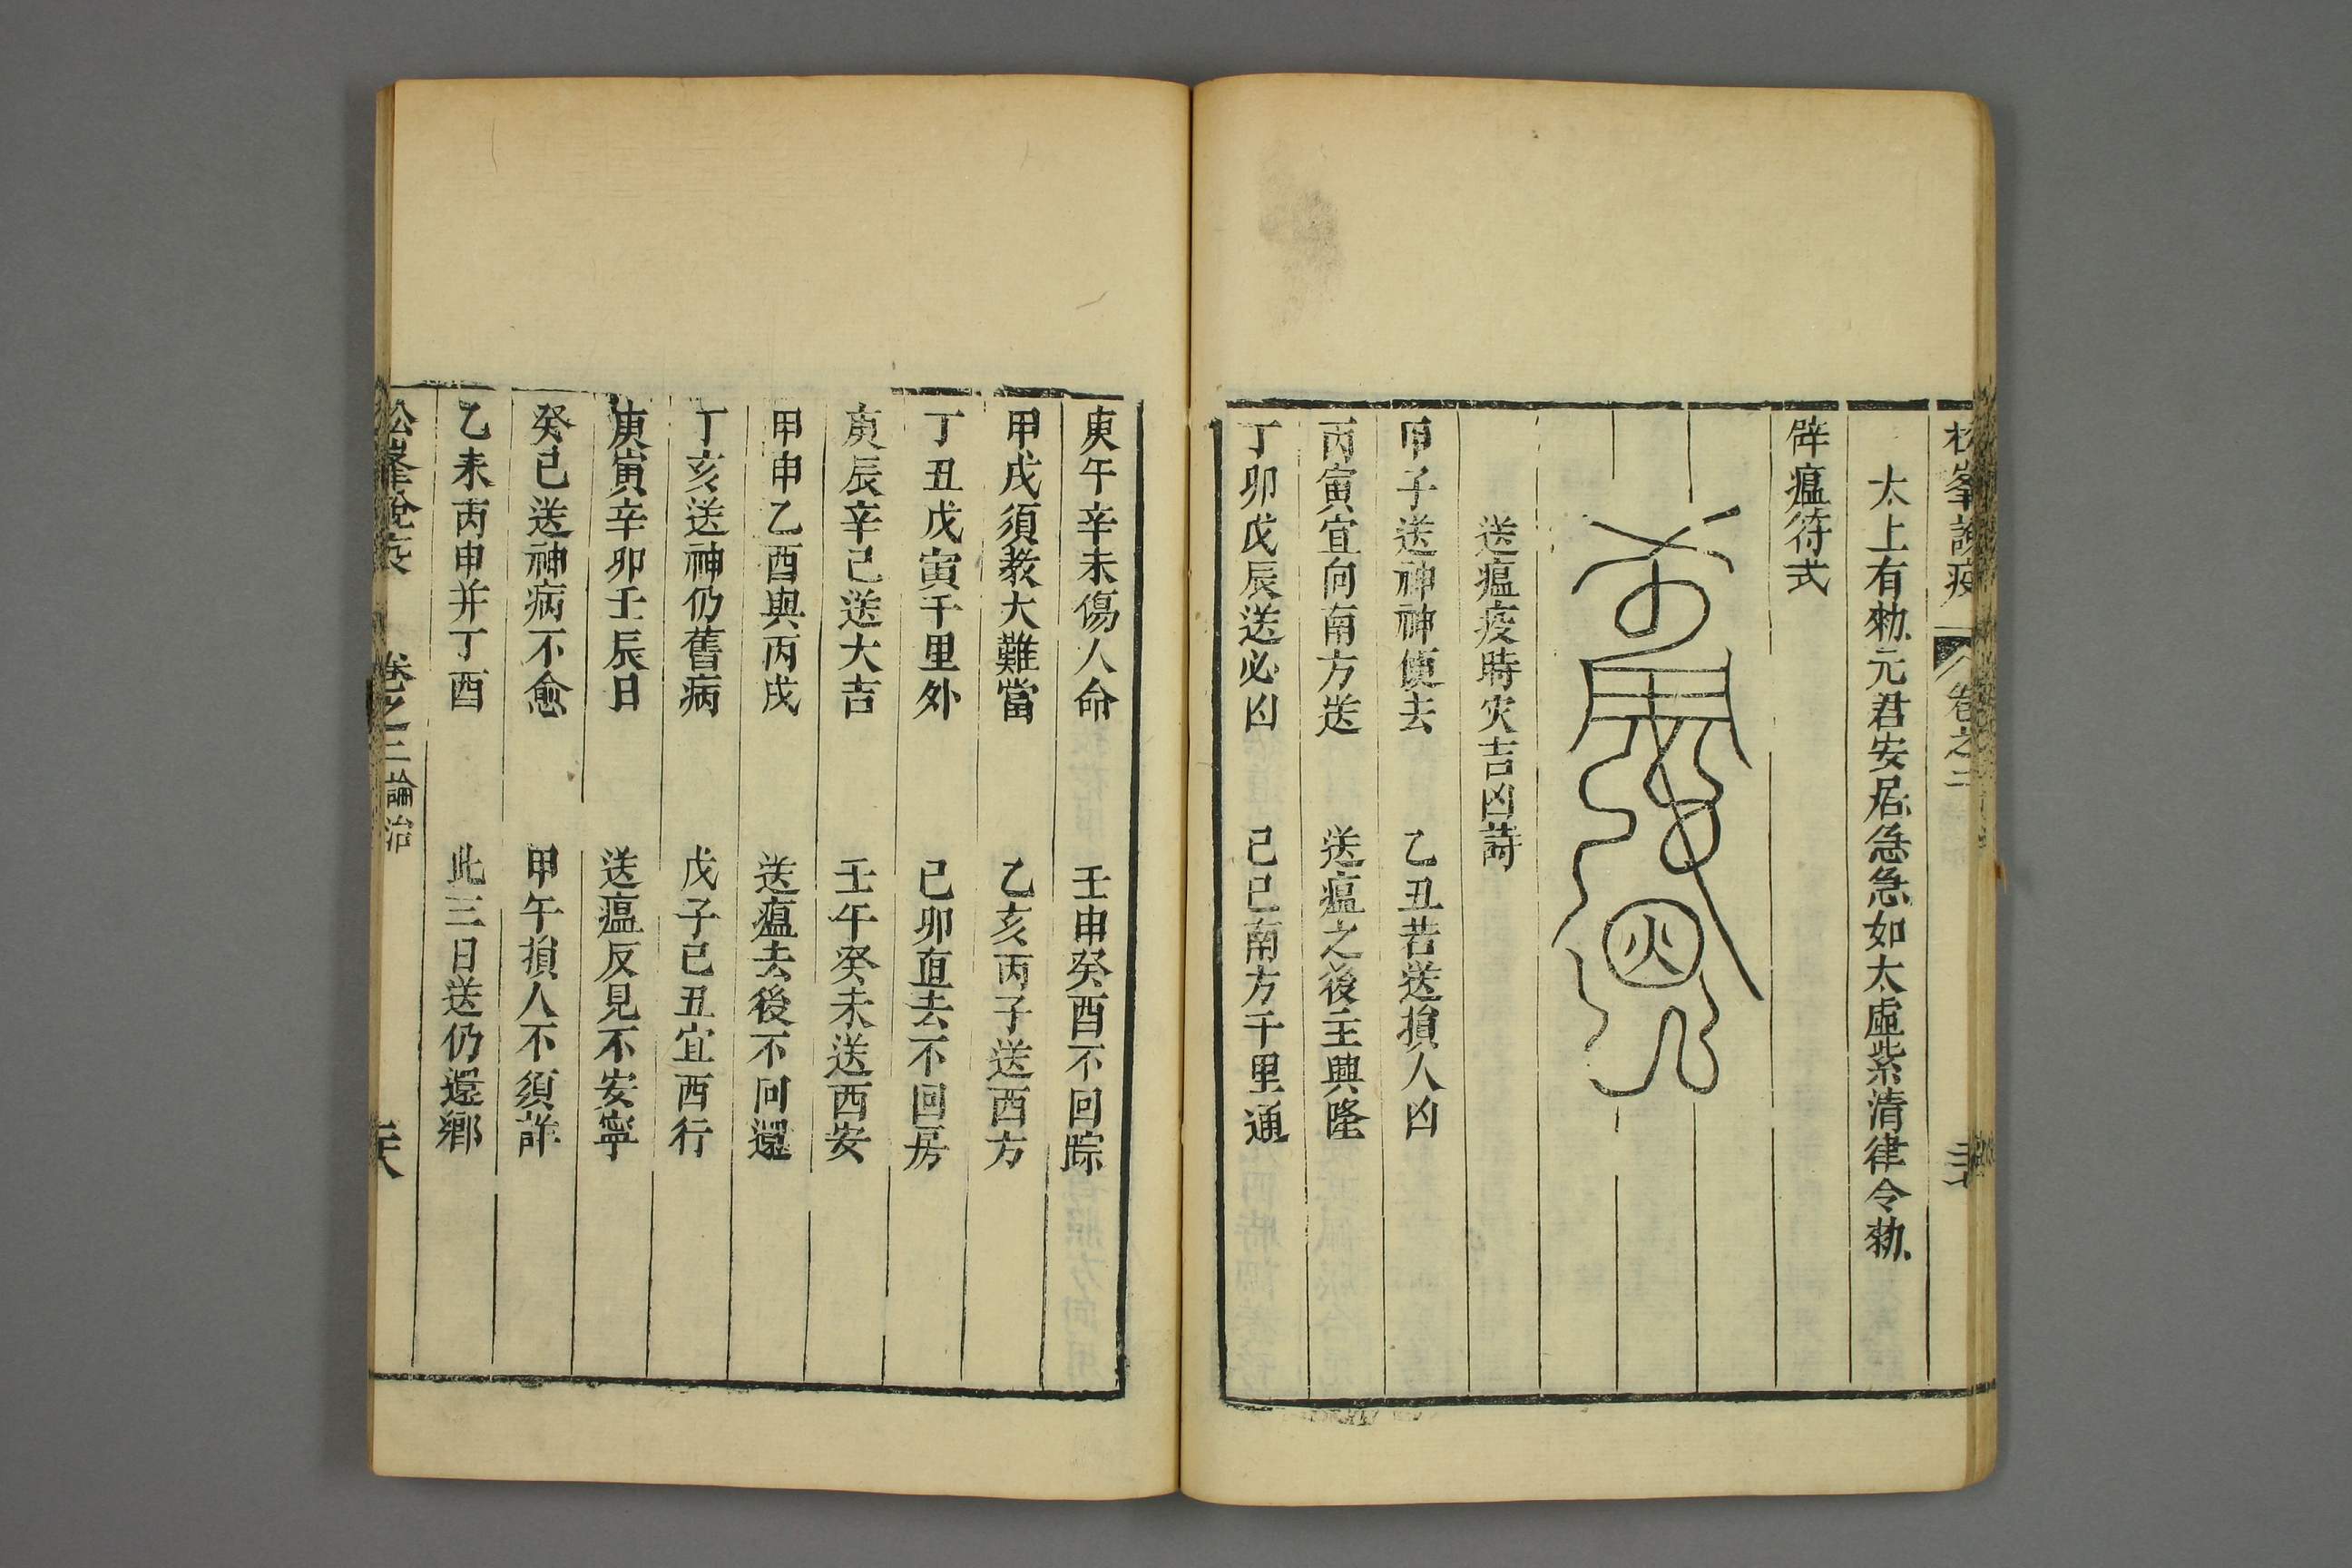 松峯說疫 卷之二
太上有勑元君安居急急如太虛紫清律令勑
辟瘟符式
火
送瘟疫時灾吉凶詩
甲子送神神便去 乙丑若送損人凶
丙寅宜向南方送 送瘟之後主興隆
丁卯戊辰送必凶 己巳南方千里通
庚午辛未傷人命 壬申癸酉不回踪
甲戌須教大難當 乙亥丙子送西方
丁丑戊寅千里外 已卯直去不回房
庚辰辛已送大吉 壬午癸未送西安
甲申乙酉與丙戌 送瘟去後不回還
丁亥送神仍舊病 戊子已丑宜西行
庚寅辛卯壬辰日 送瘟反見不安寧
癸已送神病不愈 甲午損人不須詳
乙未丙申并丁酉 此三日送仍還鄉
松峯說疫 卷之二論治